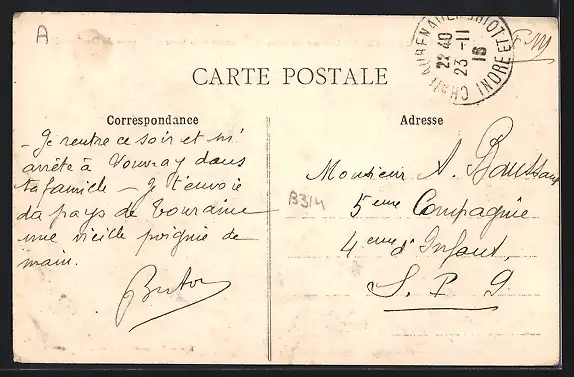 A
F M
CHATEAURENAULT INDRE ET LOIRE
22 40
23 - 11
16
CARTE POSTALE
Correspondance
Adresse
- Je rentre ce soir et m'
arrête à Vouvray dans
ta famille - Je t'envoie
du pays de Touraine
une vieille poignée de
main.
Monsieur A.
B314
5 eme Compagnie
4 eme d'Infant.
S. P. 9